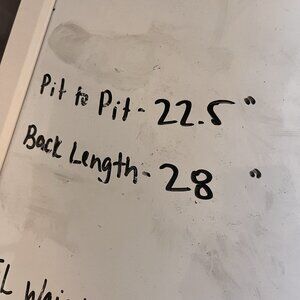 Pit to Pit - 22.5"
Back Length - 28"